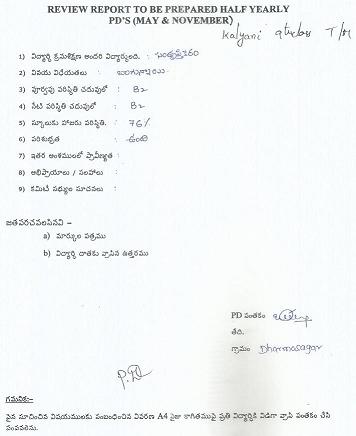 REVIEW REPORT TO BE PREPARED HALF YEARLY
PD'S (MAY & NOVEMBER)
Kalyani
1) విద్యార్థి క్రమశిక్షణ అందరి విద్యార్థులది. :
2) విషయ విధేయతలు :
3) పూర్వపు పరిస్థితి చదువులో : B2
4) నేటి పరిస్థితి చదువులో : B2
5) స్కూలుకు హాజరు పరిస్థితి. : 76%
6) పరిశుభ్రత : ఉంది
7) ఇతర అంశములలో ప్రావీణ్యత :
8) అభిప్రాయాలు / సలహాలు :
9) కమిటీ సభ్యుల సూచనలు :
జతపరచవలసినవి –
a) మార్కుల పత్రము
b) విద్యార్థి దాతకు వ్రాసిన ఉత్తరము
PD సంతకం
తేది.
గ్రామం Dharmasagar
గమనిక:–
పైన సూచించిన విషయములకు సంబంధించిన వివరణ A4 సైజు కాగితముపై ప్రతి విద్యార్థికి విడిగా వ్రాసి సంతకం చేసి
పంపవలెను.